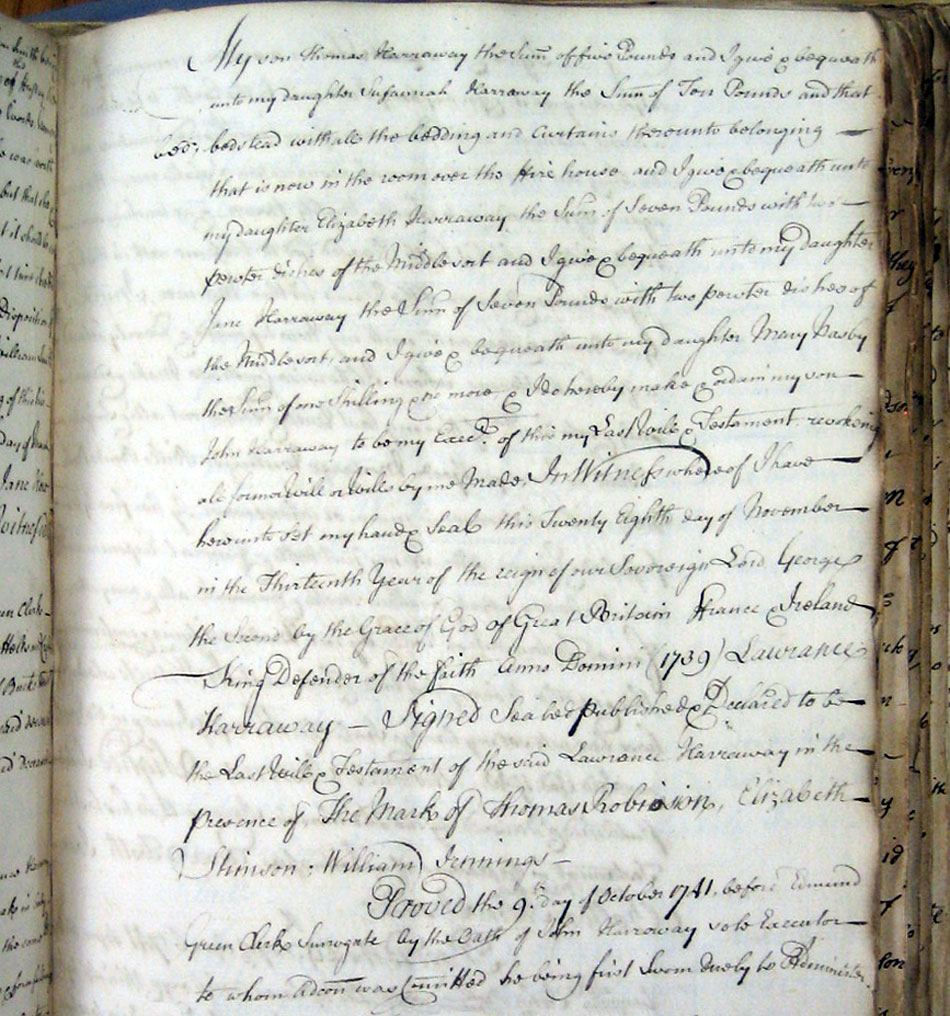 My son Thomas Harraway the Sum̄ of five Pounds and I give & bequeath
unto my daughter Susannah Harraway the Sum of Ten Pounds and that
bed, bedstead with all the bedding and Curtains thereunto belonging —
that is now in the room over the Fire house, and I give & bequeath unto
my daughter Elizabeth Harraway the Sum of Seven Pounds with two —
pewter dishes of the Middle sort and I give & bequeath unto my daughter
Jane Harraway the Sum of Seven Pounds with two pewter dishes of
the Middle sort, and I give & bequeath unto my daughter Mary
the Sum of one Shilling & no more & I do hereby make & ordain my son —
John Harraway to be my Execr. of this my Last Will & Testament revokeing
all former Will or Wills by me Made, In Witness whereof I have —
hereunto set my hand & Seal this Twenty Eighth day of November —
in the Thirteenth Year of the reign of our Sovereign Lord George
the Second by the Grace of God of Great Britain France & Ireland
King Defender of the faith Anno Domini (1739) Lawrance
Harraway — Signed Sealed published & Declared to be —
the Last Will & Testament of the said Lawrance Harraway in the —
presence of The Mark of Thomas Robinson, Elizabeth —
Stimson, William Jennings —
Proved the 9th. day of October 1741, before Edmund
Green Clerk Surrogate by the Oath of John Harraway sole Executor —
to whom Adcon̄ was Com̄itted he being first Sworn duely to Administer.